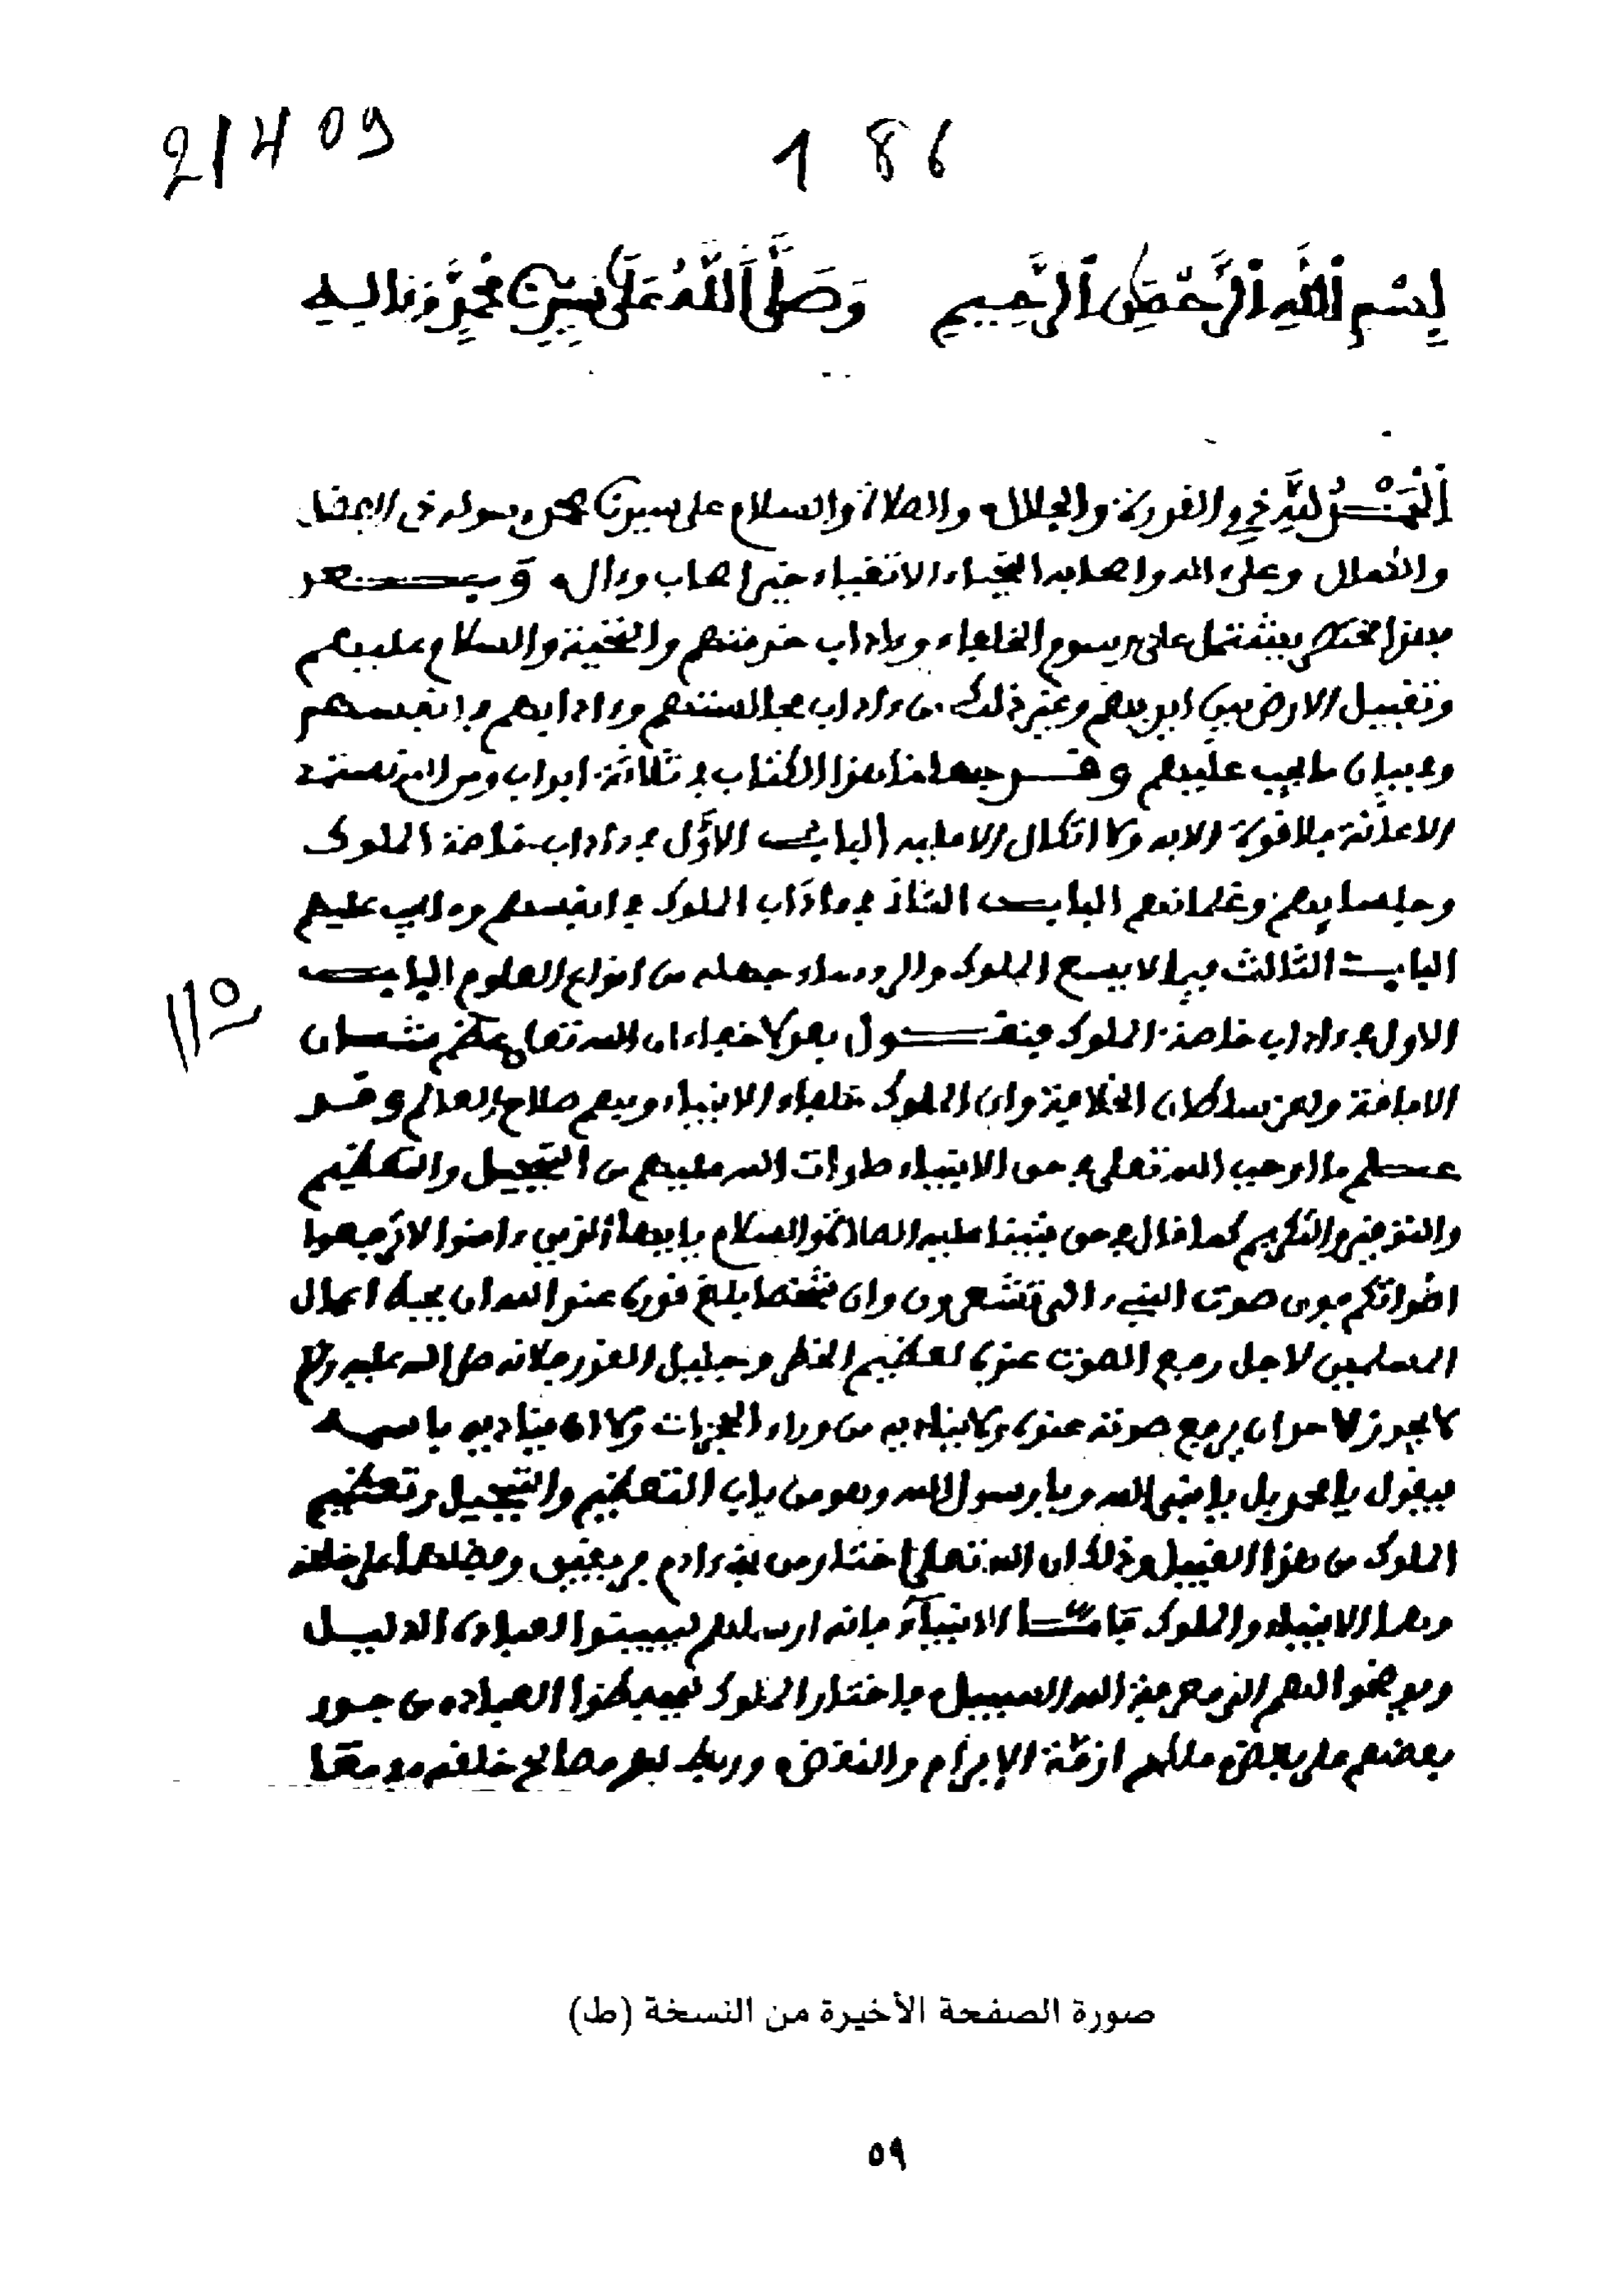 21409
186
بِسْمِ اللَّهِ الرَّحْمَنِ الرَّحِيمِ وَصَلَّى اللَّهُ عَلَى سَيِّدِنَا مُحَمَّدٍ وَءَالِهِ
الْحَمْدُ لِلَّهِ ذي القدرة والجلال والصلاة والسلام على سيدنا محمد رسوله ذي الافضال
والكمال وعلى ءاله واصحابه النجباء الاتقياء خير اصحاب وءال وبعد
فهذا مختصر يشتمل على رسوم الخلفاء وءاداب خدمتهم والتحية والسلام عليهم
وتقبيل الارض بين ايديهم وغير ذلك من ءاداب مجالستهم وءادابهم في انفسهم
وفي بيان ما يجب عليهم وقد جعلنا هذا الكتاب في ثلاثة ابواب ومن الله نستمد
الاعانة فلا قوة الا به ولا اتكال الا عليه الباب الاول في ءاداب خاصة الملوك
وجلسايهم وغلمانهم الباب الثاني في ءاداب الملوك في انفسهم وما يجب عليهم
الباب الثالث فيما لا يسع الملوك والرؤساء جهله من انواع العلوم الباب
115
الاول في ءاداب خاصة الملوك فنقول هو لا خفاء ان الله تعالى عظم شان
الامامة واعز سلطان الخلافة وان الملوك خلفاء الانبياء وبهم صلاح العالم وقد
علم ما اوجب الله تعالى في حق الانبياء صلوات الله عليهم من التبجيل والتعظيم
والتوقير والتكريم كما قال في حق نبينا عليه الصلاة والسلام يا ايها الذين ءامنوا لا ترفعوا
اصواتكم فوق صوت النبيء الى تشعرون وان شخصا بلغ قدره عند الله ان يحبط اعمال
المسلمين لاجل رفع الصوت عنده لعظيم الخطر وجليل القدر فلانه صلى الله عليه وسلم
لا يجوز لاحد ان يرفع صوته عنده ولا يناديه من وراء الحجرات ولا ان يناديه باسمه
فيقول يا محمد بل يا نبي الله ويا رسول الله وهو من باب التعظيم والتبجيل وتعظيم
الملوك من هذا القبيل وذلك ان الله تعالى اختار من بني ءادم فريقين وفضلهما على خلقه
وهما الانبياء والملوك فاما الانبياء فانه ارسلهم ليبينوا لعباده الدليل
ويوضحوا لهم الى معرفة الله السبيل واختار الملوك ليحفظوا العباد من جور
بعضهم على بعض وملكهم ازمة الابرام والنقض وربط بهم مصالح خلقه
صورة الصفحة الأخيرة من النسخة (ط)
٥٩